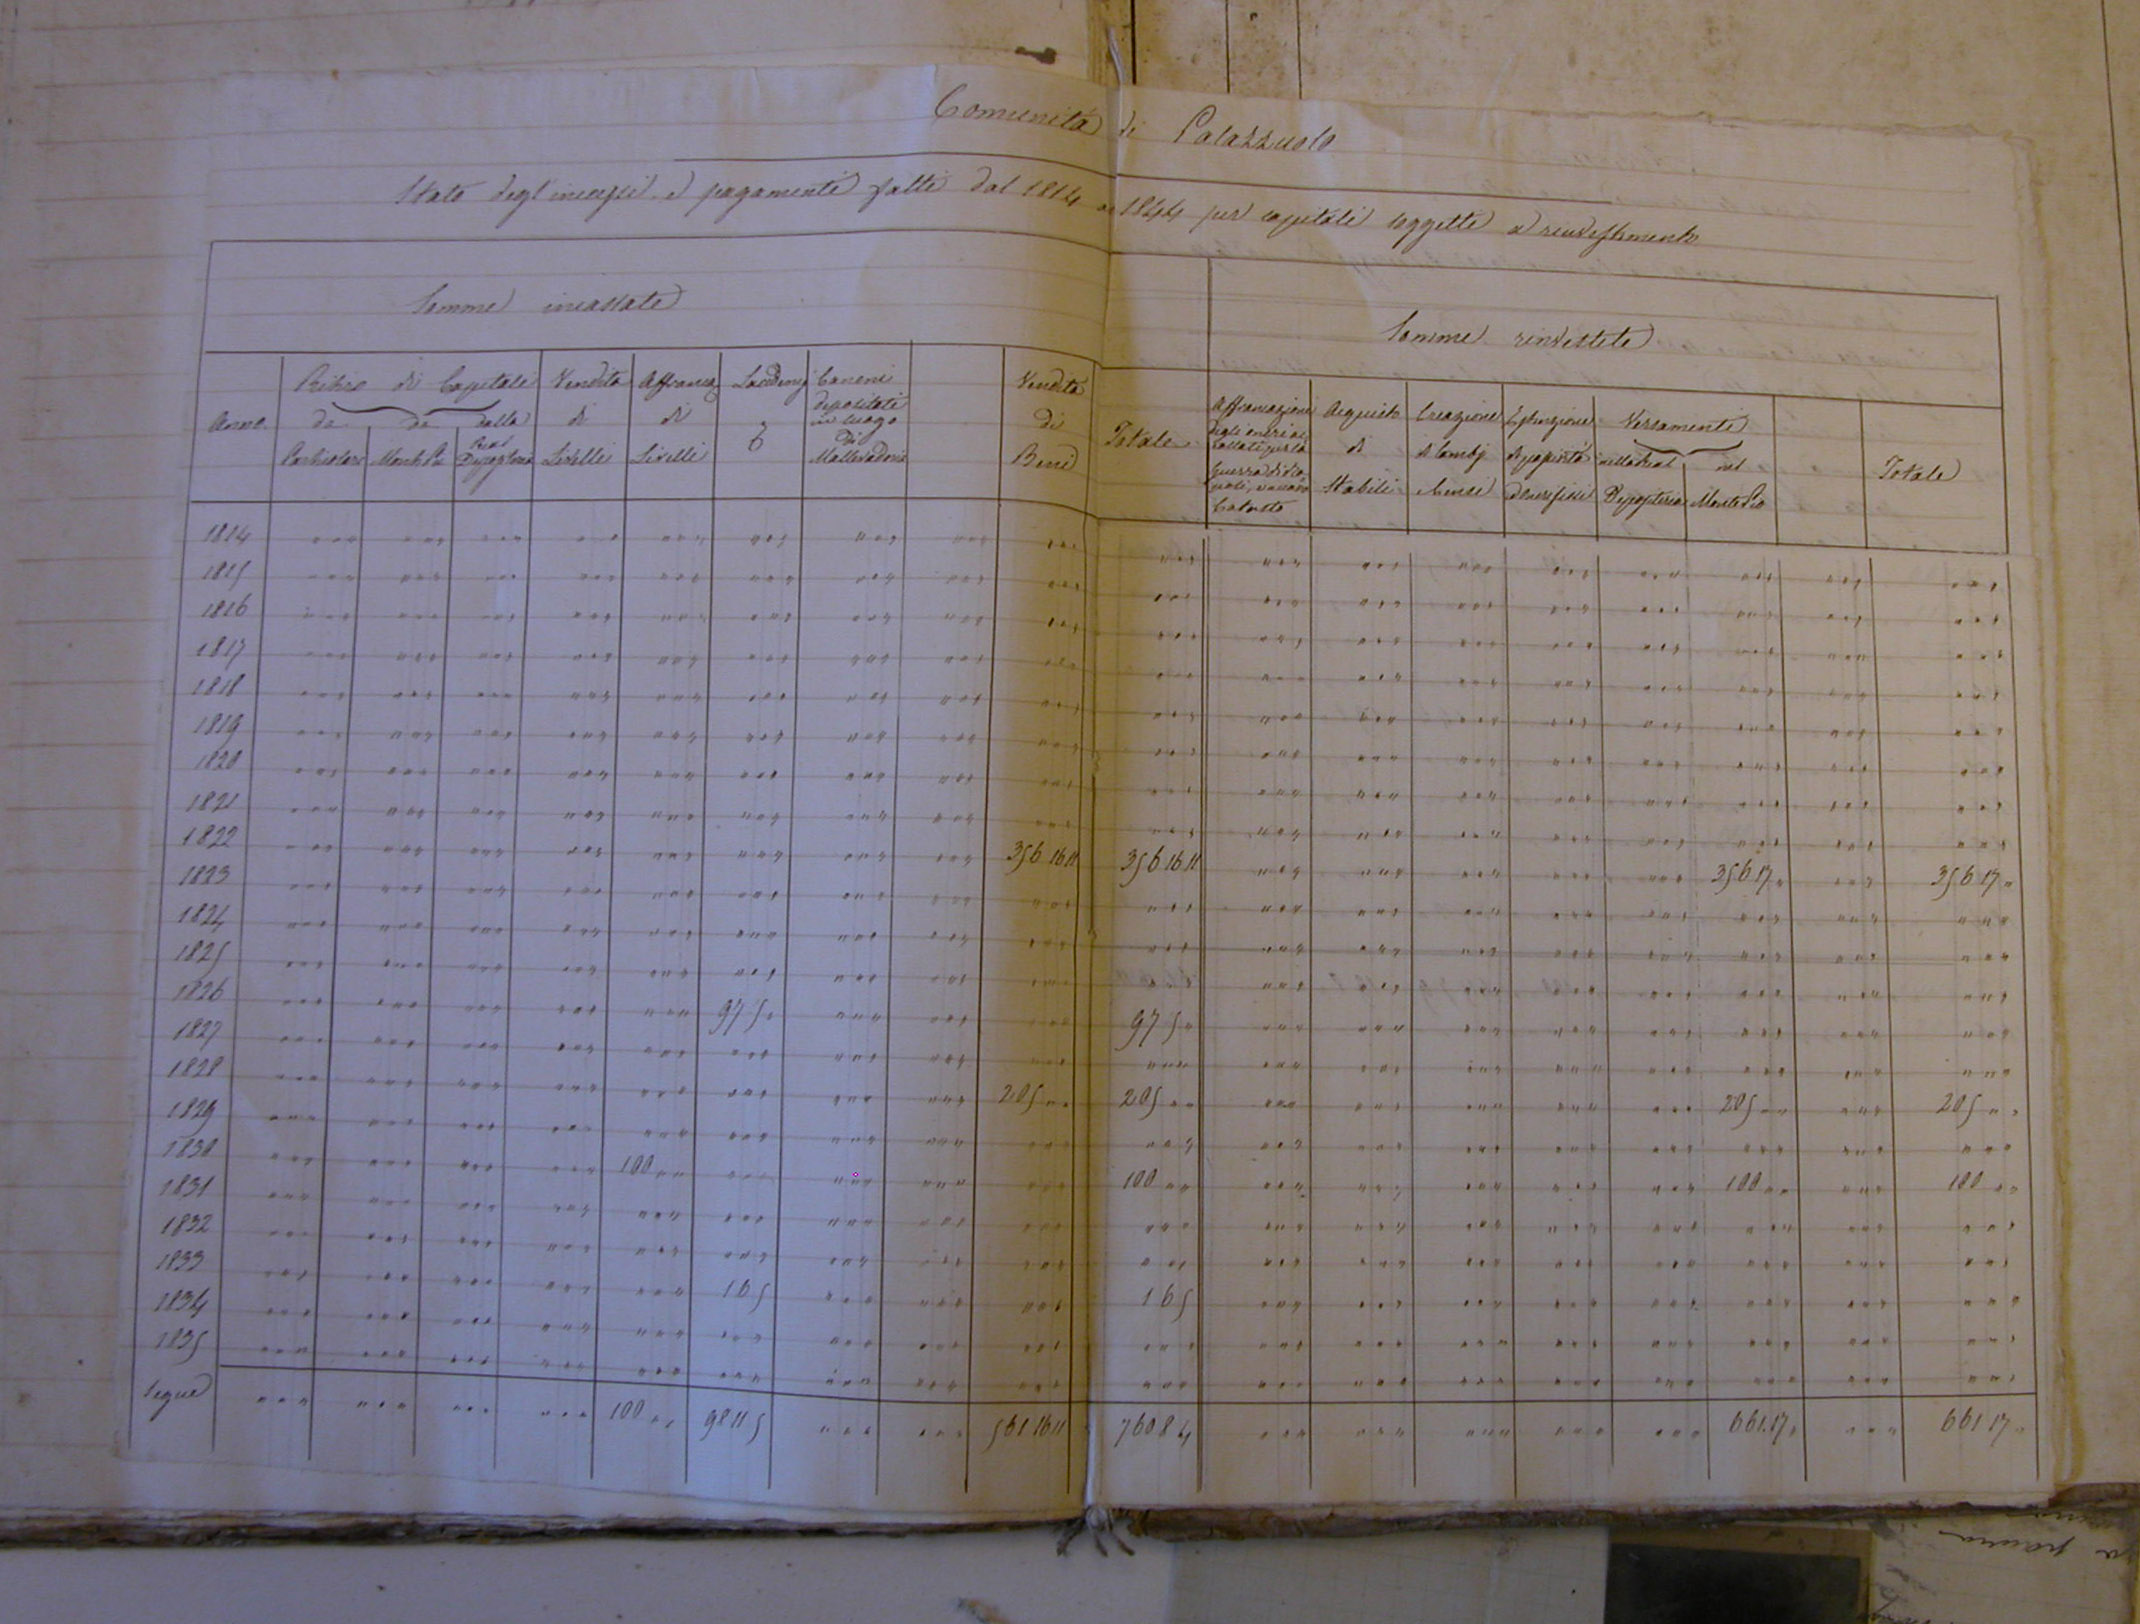 Comunità di Palazzuolo
Stato degl'incassi e pagamenti fatti dal 1814 al 1844 per capitali soggetti a rinvestimento
Somme incassate
Somme rinvestite
Anno
Ritiro di Capitali
da Particolari
da Monti Pii
dalla Real Depositeria
Vendita di Livelli
Affrancaz di Livelli
Laudemj
Canoni depositati in luogo di Mallevadoria
Vendita di Beni
Totale
Affrancazione degli oneri
Acquisto di Stabili
Creazione di Cambj
Estinzione di
Versamenti
nella Real Depositeria
nel Monte Pio
Totale
1814
1815
1816
1817
1818
1819
1820
1821
1822 356 16 11 356 16 11 356 17 " 356 17 "
1823
1824
1825
1826 97 5 " 97 5 "
1827
1828 205 " " 205 " " 205 " " 205 " "
1829
1830 100 " " 100 " " 100 " " 100 " "
1831
1832
1833 1 6 5 1 6 5
1834
1835
Segue 100 " " 98 11 5 561 16 11 760 8 4 661 17 " 661 17 "